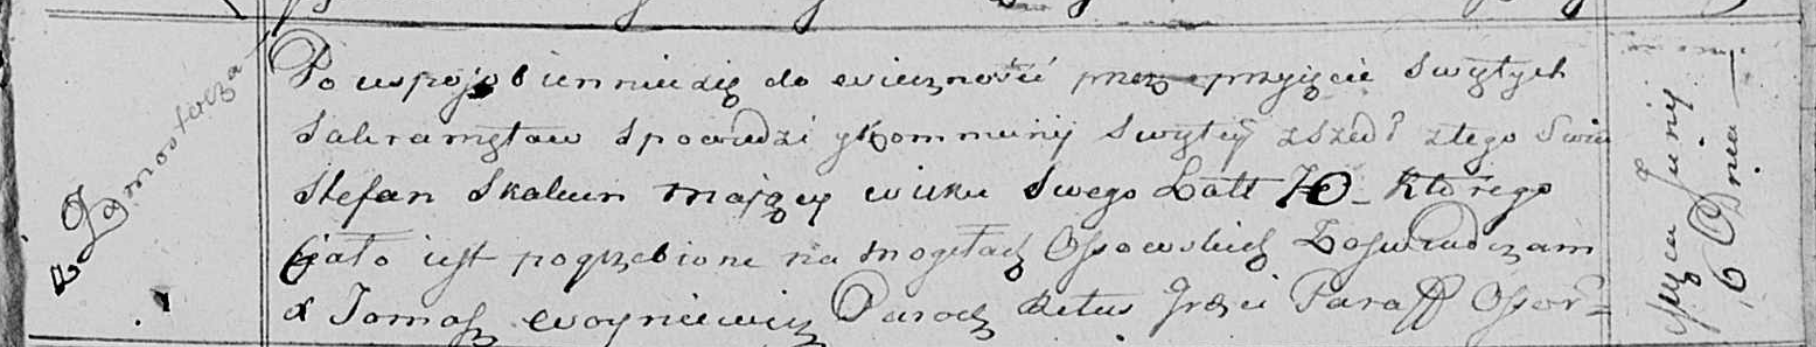 z Zamostocza
Po uspojobienniu się do wiecznośći przez przyięcie Swiętych
Sakramętow Spowiedzi y Kommunij Swiętey zszedł z tego Swia
Stefan Skakun mający wieku Swego Latt 70 - Ktorego
Ciało iest pogrzebione na mogiłach Ossowskich Zaswiadczam
X Tomasz Woyniewicz Paroch Ritus Grae̅ci Paraff Ossow=
Mcca Junij
6 Dnia